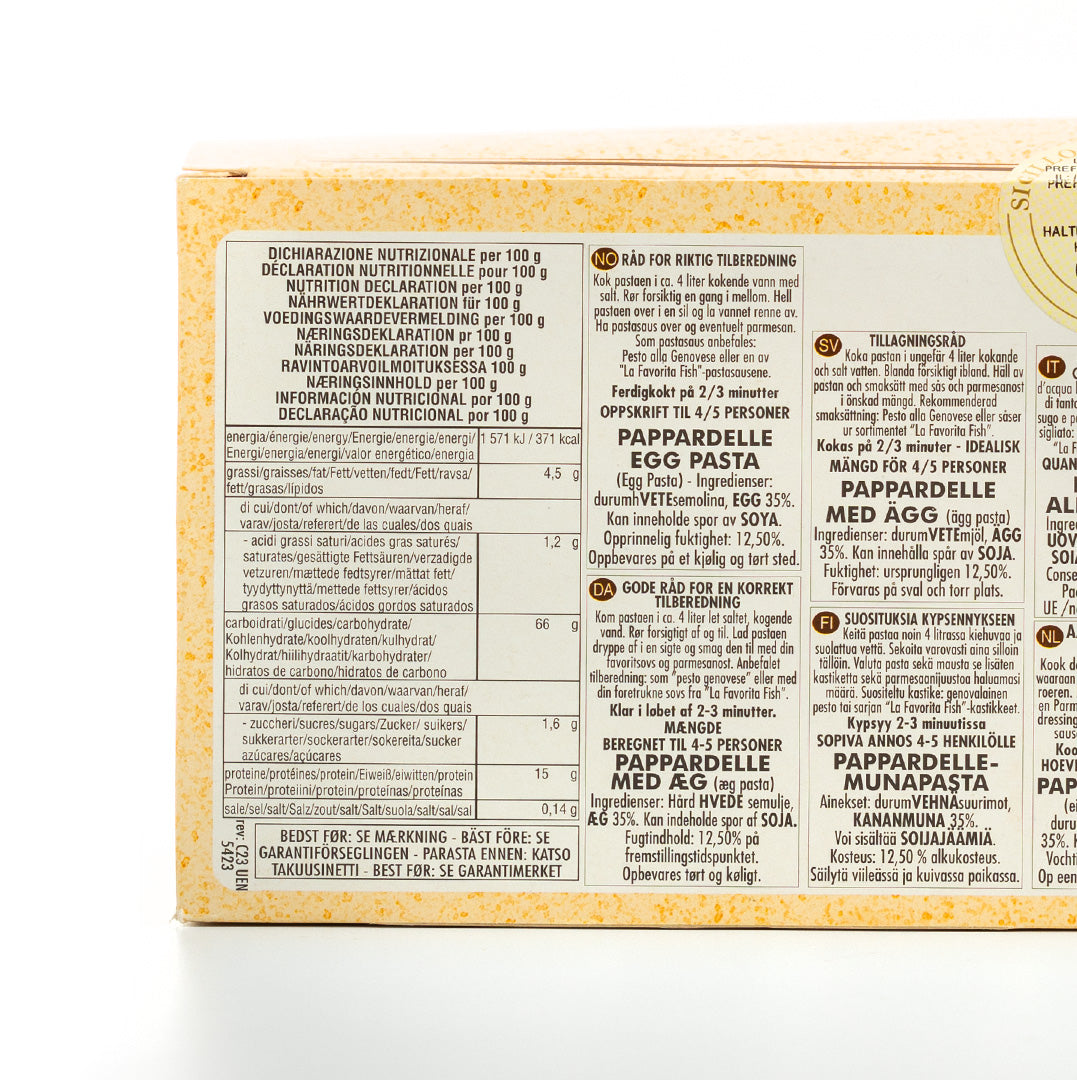 DICHIARAZIONE NUTRIZIONALE per 100 g
DÉCLARATION NUTRITIONNELLE pour 100 g
NUTRITION DECLARATION per 100 g
NÄHRWERTDEKLARATION für 100 g
VOEDINGSWAARDEVERMELDING per 100 g
NÆRINGSDEKLARATION pr 100 g
NÄRINGSDEKLARATION per 100 g
RAVINTOARVOILMOITUKSESSA 100 g
NÆRINGSINNHOLD per 100 g
INFORMACIÓN NUTRICIONAL por 100 g
DECLARAÇÃO NUTRICIONAL por 100 g
energia/énergie/energy/Energie/energie/energi/ 1 571 kJ / 371 kcal
Energi/energia/energi/valor energético/energia
grassi/graisses/fat/Fett/vetten/fedt/Fett/ravsa/ 4,5 g
fett/grasas/lípidos
di cui/dont/of which/davon/waarvan/heraf/
varav/josta/referert/de las cuales/dos quais
- acidi grassi saturi/acides gras saturés/ 1,2 g
saturates/gesättigte Fettsäuren/verzadigde
vetzuren/mættede fedtsyrer/mättat fett/
tyydyttynyttä/mettede fettsyrer/ácidos
grasos saturados/ácidos gordos saturados
carboidrati/glucides/carbohydrate/ 66 g
Kohlenhydrate/koolhydraten/kulhydrat/
Kolhydrat/hiilihydraatit/karbohydrater/
hidratos de carbono/hidratos de carbono
di cui/dont/of which/davon/waarvan/heraf/
varav/josta/referert/de los cuales/dos quais
- zuccheri/sucres/sugars/Zucker/ suikers/ 1,6 g
sukkerarter/sockerarter/sokereita/sucker
azúcares/açúcares
proteine/protéines/protein/Eiweiß/eiwitten/protein 15 g
Protein/proteiini/protein/proteínas/proteínas
sale/sel/salt/Salz/zout/salt/Salt/suola/salt/sal/sal 0,14 g
rev: C23 UEN
5423
BEDST FØR: SE MÆRKNING - BÄST FÖRE: SE
GARANTIFÖRSEGLINGEN - PARASTA ENNEN: KATSO
TAKUUSINETTI - BEST FØR: SE GARANTIMERKET
NO RÅD FOR RIKTIG TILBEREDNING
Kok pastaen i ca. 4 liter kokende vann med
salt. Rør forsiktig en gang i mellom. Hell
pastaen over i en sil og la vannet renne av.
Ha pastasaus over og eventuelt parmesan.
Som pastasaus anbefales:
Pesto alla Genovese eller en av
"La Favorita Fish"-pastasausene.
Ferdigkokt på 2/3 minutter
OPPSKRIFT TIL 4/5 PERSONER
PAPPARDELLE
EGG PASTA
(Egg Pasta) - Ingredienser:
durumhVETEsemolina, EGG 35%.
Kan inneholde spor av SOYA.
Opprinnelig fuktighet: 12,50%.
Oppbevares på et kjølig og tørt sted.
DA GODE RÅD FOR EN KORREKT
TILBEREDNING
Kom pastaen i ca. 4 liter let saltet, kogende
vand. Rør forsigtigt af og til. Lad pastaen
dryppe af i en sigte og smag den til med din
favoritsovs og parmesanost. Anbefalet
tilberedning: som "pesto genovese" eller med
din foretrukne sovs fra "La Favorita Fish".
Klar i løbet af 2-3 minutter.
MÆNGDE
BEREGNET TIL 4-5 PERSONER
PAPPARDELLE
MED ÆG (æg pasta)
Ingredienser: Hård HVEDE semulje,
ÆG 35%. Kan indeholde spor af SOJA.
Fugtindhold: 12,50% på
fremstillingstidspunktet.
Opbevares tørt og køligt.
SV TILLAGNINGSRÅD
Koka pastan i ungefär 4 liter kokande
och salt vatten. Blanda försiktigt ibland. Häll av
pastan och smaksätt med sås och parmesanost
i önskad mängd. Rekommenderad
smaksättning: Pesto alla Genovese eller såser
ur sortimentet "La Favorita Fish".
Kokas på 2/3 minuter - IDEALISK
MÄNGD FÖR 4/5 PERSONER
PAPPARDELLE
MED ÄGG (ägg pasta)
Ingredienser: durumVETEmjöl, ÄGG
35%. Kan innehålla spår av SOJA.
Fuktighet: ursprungligen 12,50%.
Förvaras på sval och torr plats.
FI SUOSITUKSIA KYPSENNYKSEEN
Keitä pastaa noin 4 litrassa kiehuvaa ja
suolattua vettä. Sekoita varovasti aina silloin
tällöin. Valuta pasta sekä mausta se lisäten
kastiketta sekä parmesaanijuustoa haluamasi
määrä. Suositeltu kastike: genovalainen
pesto tai sarjan "La Favorita Fish"-kastikkeet.
Kypsyy 2-3 minuutissa
SOPIVA ANNOS 4-5 HENKILÖLLE
PAPPARDELLE-
MUNAPASTA
Ainekset: durumVEHNÄsuurimot,
KANANMUNA 35%.
Voi sisältää SOIJAJÄÄMIÄ.
Kosteus: 12,50 % alkukosteus.
Säilytä viileässä ja kuivassa paikassa.
IT
d'acqua
di tanto
sugo e p
sigliato:
"La F
QUAN
AL
Ingre
UOV
SOIA
Conse
Pae
UE /n
NL
Kook de
waaraan
roeren.
en Parm
dressing
saus
Koo
HOEVE
PAP
(ei
duru
35%. K
Vochti
Op een
SIGILLO
PREF
HALTU